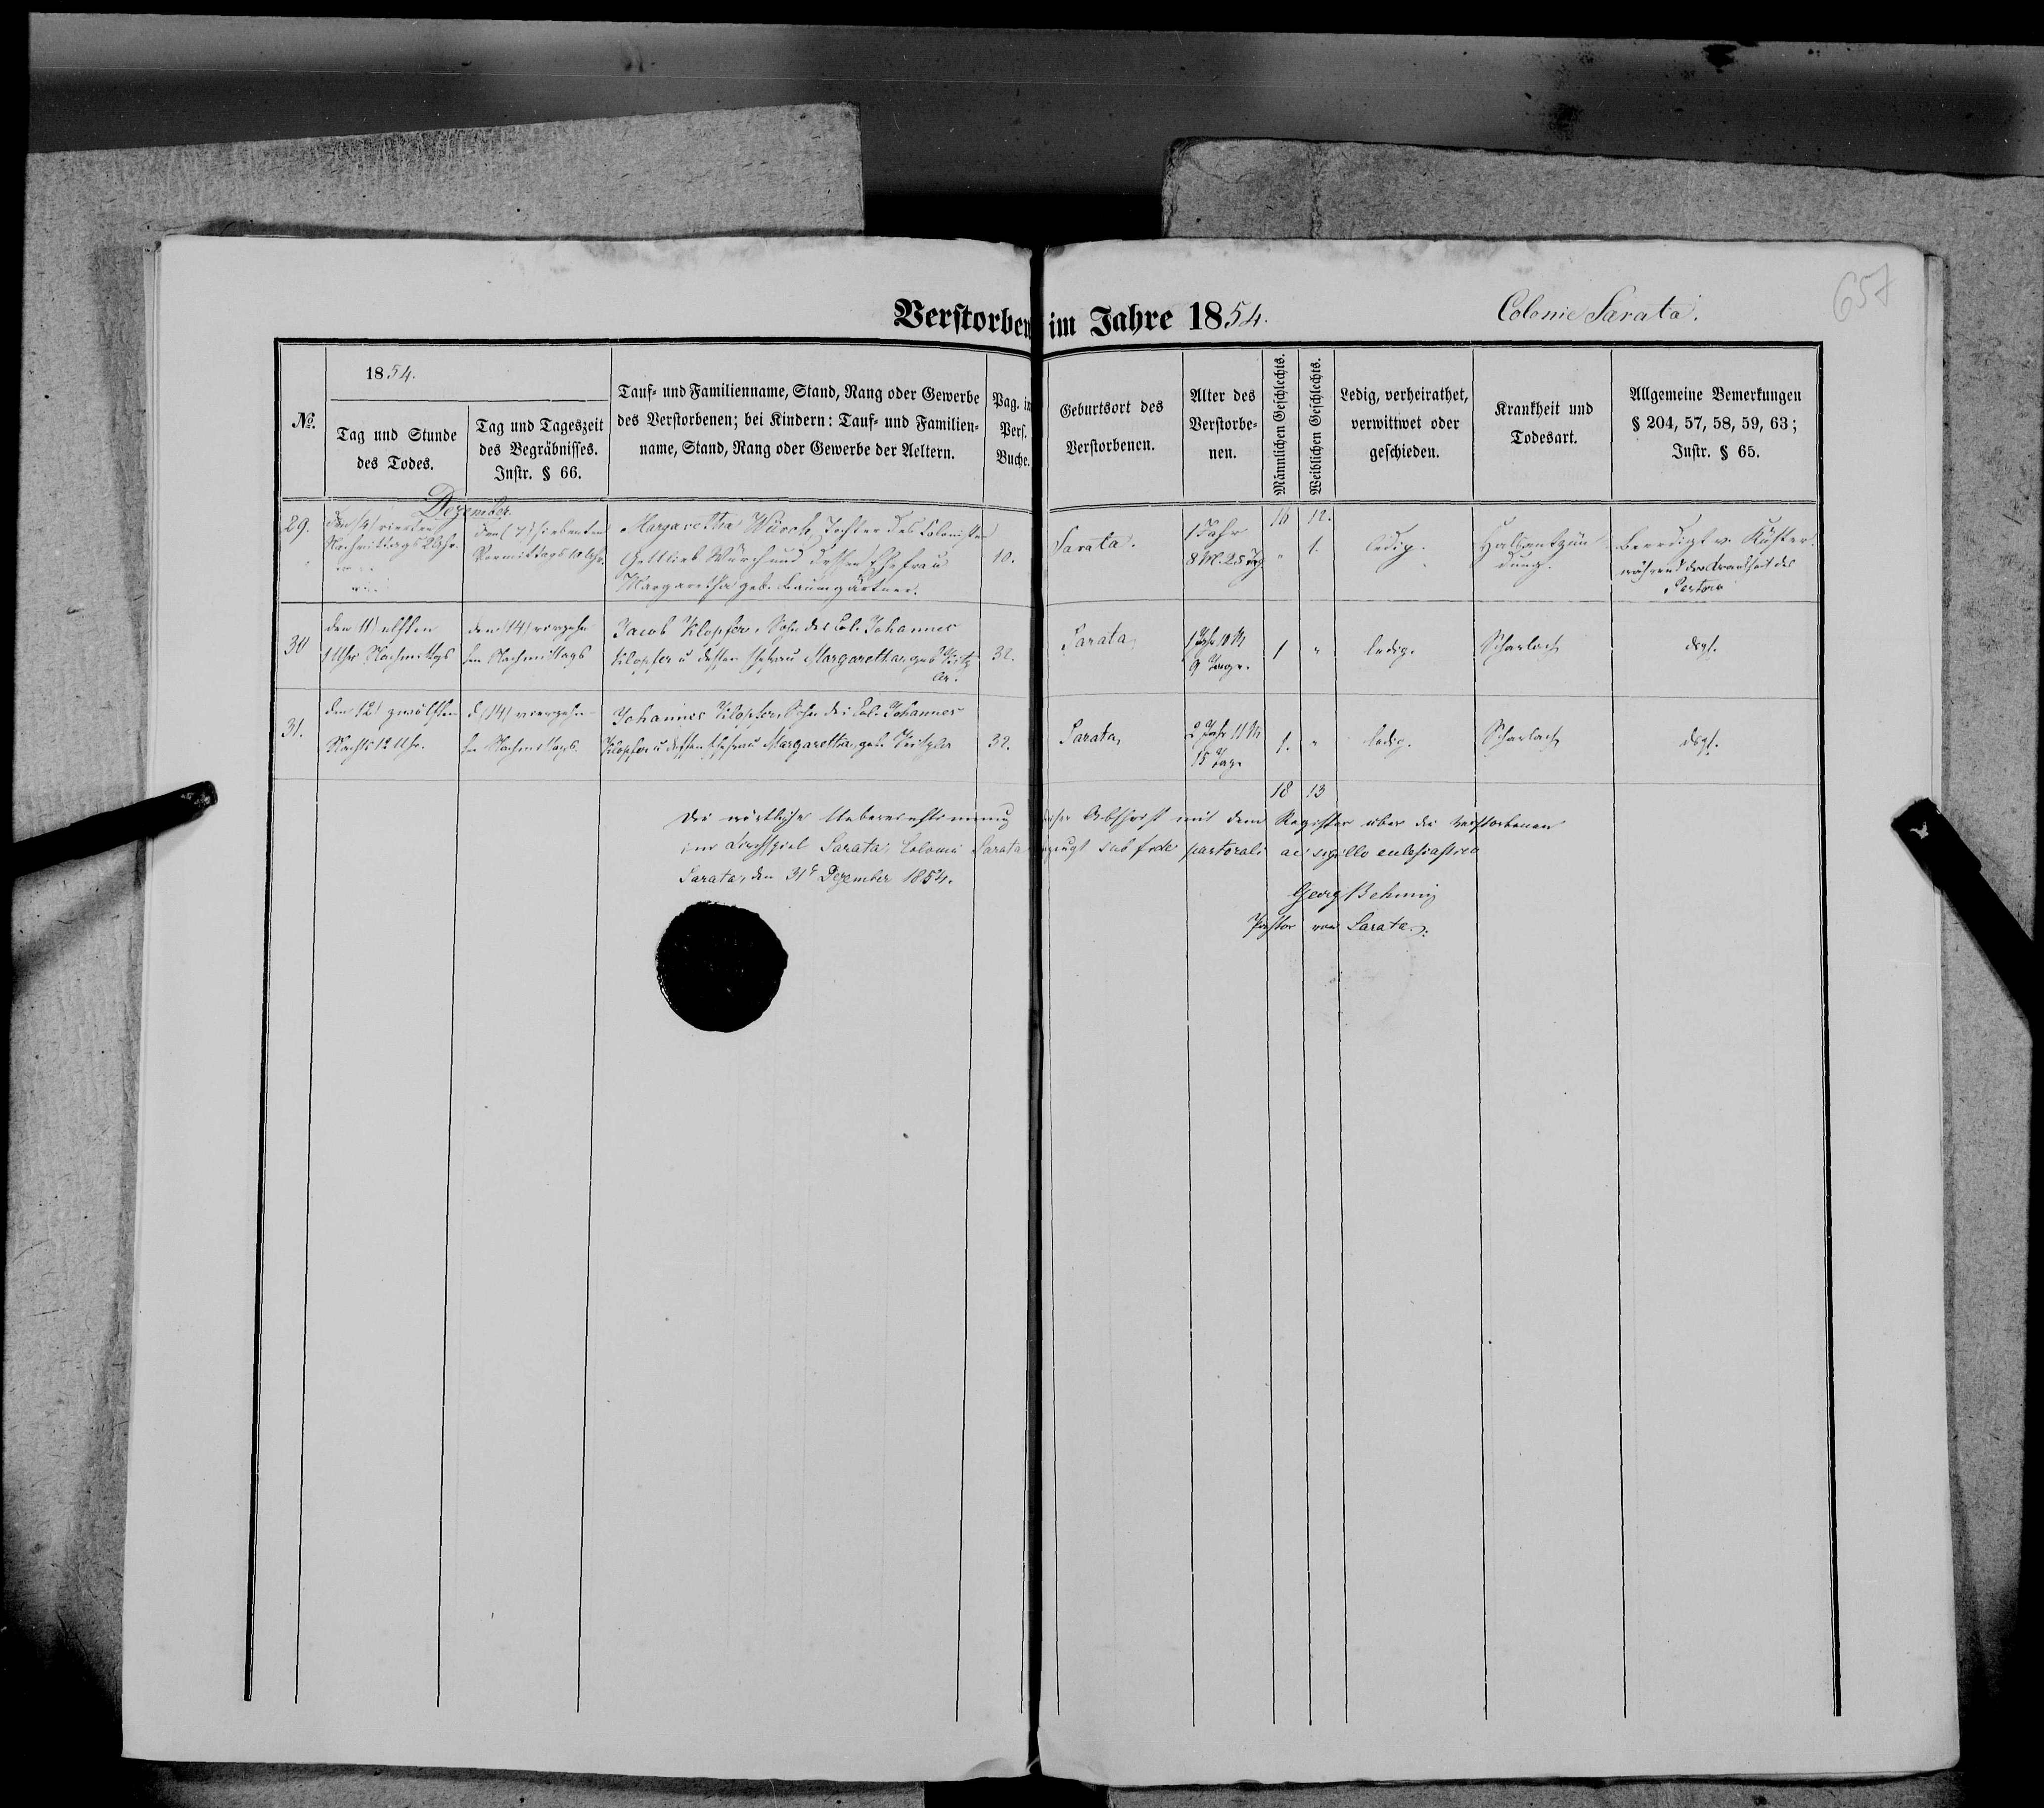 657
Verstorben im Jahre 1854.
Colonie Sarata.
No.
1854.
Tag und Stunde
des Todes.
Tag und Tageszeit
des Begräbnisses.
Instr. § 66.
Tauf- und Familienname, Stand, Rang oder Gewerbe
des Verstorbenen; bei Kindern: Tauf- und Familien-
name, Stand, Rang oder Gewerbe der Aeltern.
Pag. im
Pers.
Buche.
Geburtsort des
Verstorbenen.
Alter des
Verstorbe-
nen.
Männlichen Geschlechts.
Weiblichen Geschlechts.
Ledig, verheirathet,
verwittwet oder
geschieden.
Krankheit und
Todesart.
Allgemeine Bemerkungen
§ 204, 57, 58, 59, 63;
Instr. § 65.
Dezember.
29.
den (4) vierten
Nachmittags 2 Uhr.
den (7) siebenten
Vormittags 10 Uhr.
Margaretha Würch, Tochter des Colonisten
Gottlieb Würch und dessen Ehefrau
Margaretha geb. Baumgärtner.
10.
Sarata.
1 Jahr
8 M. 25 Tg
12.
"
1.
ledig.
Halsentzün-
dung.
Beerdigt v. Küster
während der Krankheit des
Pastors
30
den 11) elften
1 Uhr Nachmittags
den (14) vierzehn-
ten Nachmittags
Jacob Klopfer, Sohn des Col. Johannes
Klopfer u dessen Ehefrau Margaretha, geb.
ler.
32.
Sarata,
1 Jahr 10 M
9 Tage.
1
"
ledig.
Scharlach
dsgl.
31.
den 12) zwölften
Nachts 12 Uhr.
d. (14) vierzehn-
ten Nachmittags.
Johannes Klopfer, Sohn des Col. Johannes
Klopfer u dessen Ehefrau Margaretha, geb.
32.
Sarata,
2 Jahr 11 M
15 Tage
1.
"
ledig.
Scharlach
dsgl.
18 13
Die wörtliche Uebereinstimmung dieser Abschrift mit dem Register über die Verstorbenen
im Kirchspiel Sarata, Colonie Sarata bezeugt sub fide pastorali ac sigillo ecclesiastico
Sarata, den 31t Dezember 1854.
Georg Behning
Pastor von Sarata.